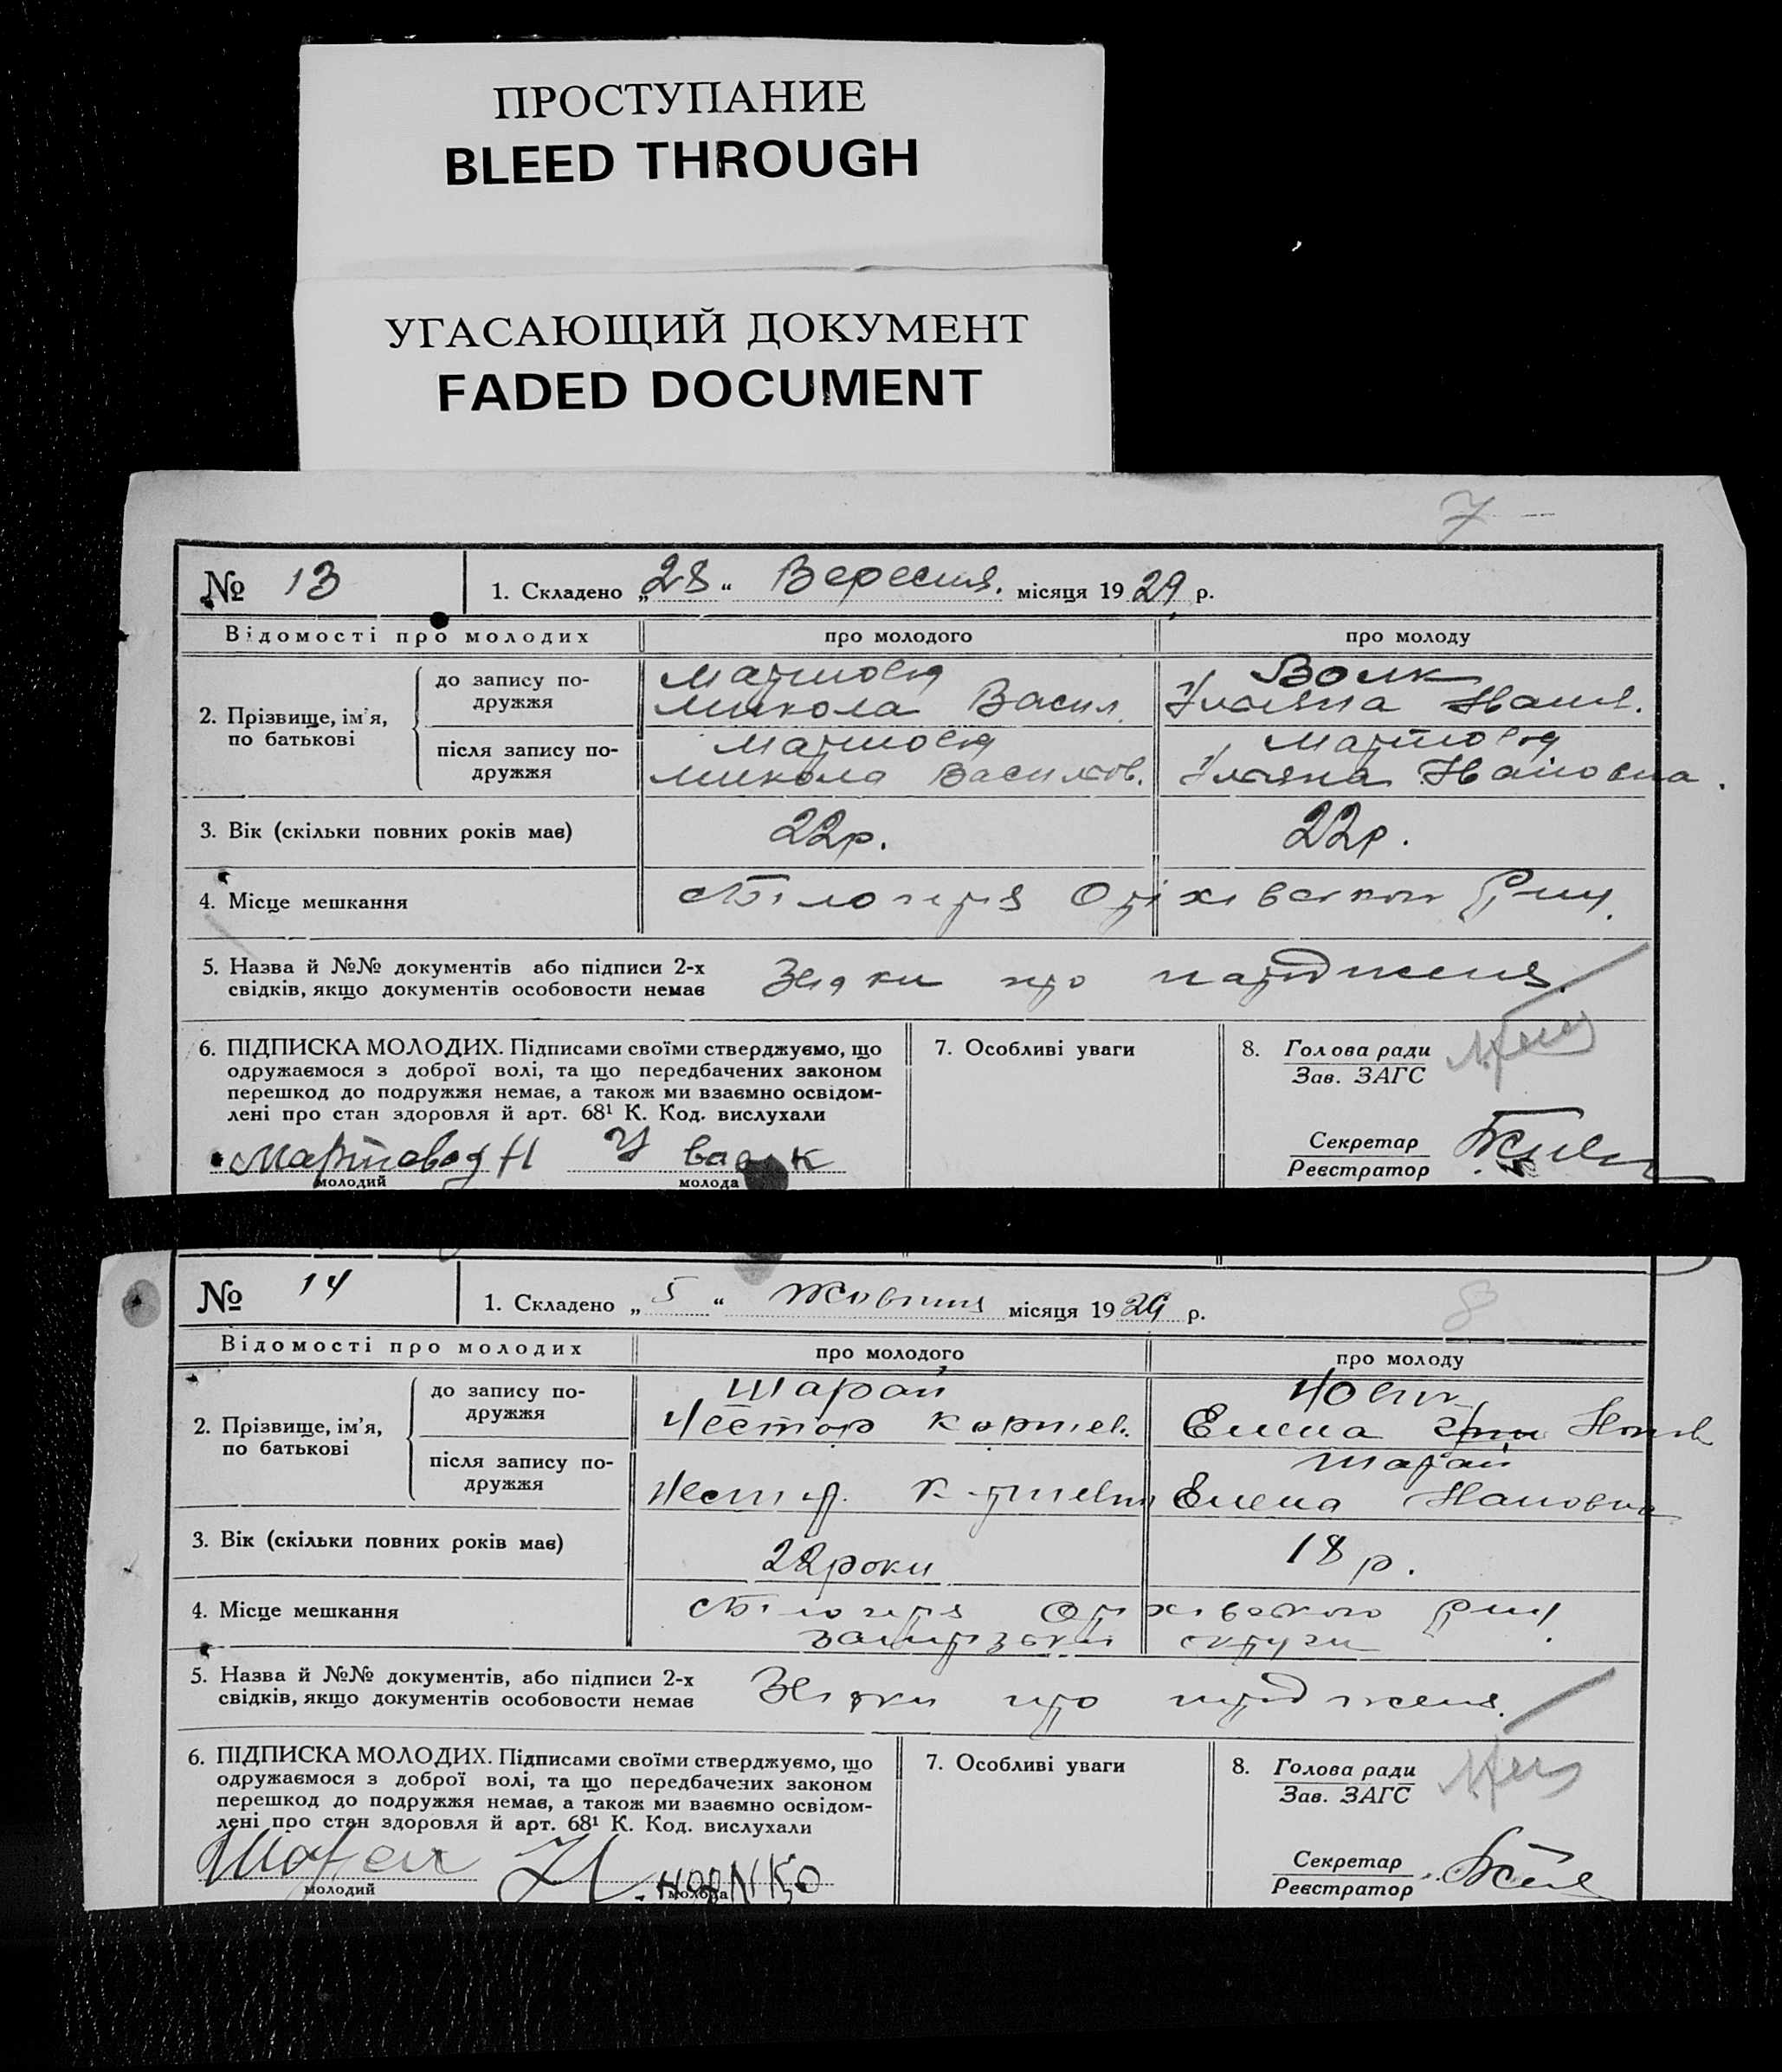 ПРОСТУПАНИЕ
BLEED THROUGH
УГАСАЮЩИЙ ДОКУМЕНТ
FADED DOCUMENT
7
№ 13 1. Складено „28“ Вересня. місяця 1929 р.
Відомості про молодих про молодого про молоду
2. Прізвище, ім'я, по батькові
до запису подружжя
Микола Васил.
Вовк
Уляна Іванів.
після запису подружжя
Микола Васильов.
Уляна Івановна.
3. Вік (скільки повних років має) 22р. 22р.
4. Місце мешкання Білогіря Оріхівського
5. Назва й №№ документів або підписи 2-х
свідків, якщо документів особовости немає
про народження.
6. ПІДПИСКА МОЛОДИХ. Підписами своїми стверджуємо, що
одружаємося з доброї волі, та що передбачених законом
перешкод до подружжя немає, а також ми взаємно освідом-
лені про стан здоровля й арт. 68¹ К. Код. вислухали
молодий молода
7. Особливі уваги
8. Голова ради
Зав. ЗАГС
Секретар
Реєстратор
№ 14 1. Складено „5“ Жовтня місяця 1929 р.
8
Відомості про молодих про молодого про молоду
2. Прізвище, ім'я, по батькові
до запису подружжя
Шарай
Нестор Корнієв.
Елена
після запису подружжя
Нестор
Шарай
Елена Івановна
3. Вік (скільки повних років має) 22роки 18 р.
4. Місце мешкання Білогіря Оріхівського
округи
5. Назва й №№ документів, або підписи 2-х
свідків, якщо документів особовости немає
про народження.
6. ПІДПИСКА МОЛОДИХ. Підписами своїми стверджуємо, що
одружаємося з доброї волі, та що передбачених законом
перешкод до подружжя немає, а також ми взаємно освідом-
лені про стан здоровля й арт. 68¹ К. Код. вислухали
молодий молода
7. Особливі уваги
8. Голова ради
Зав. ЗАГС
Секретар
Реєстратор